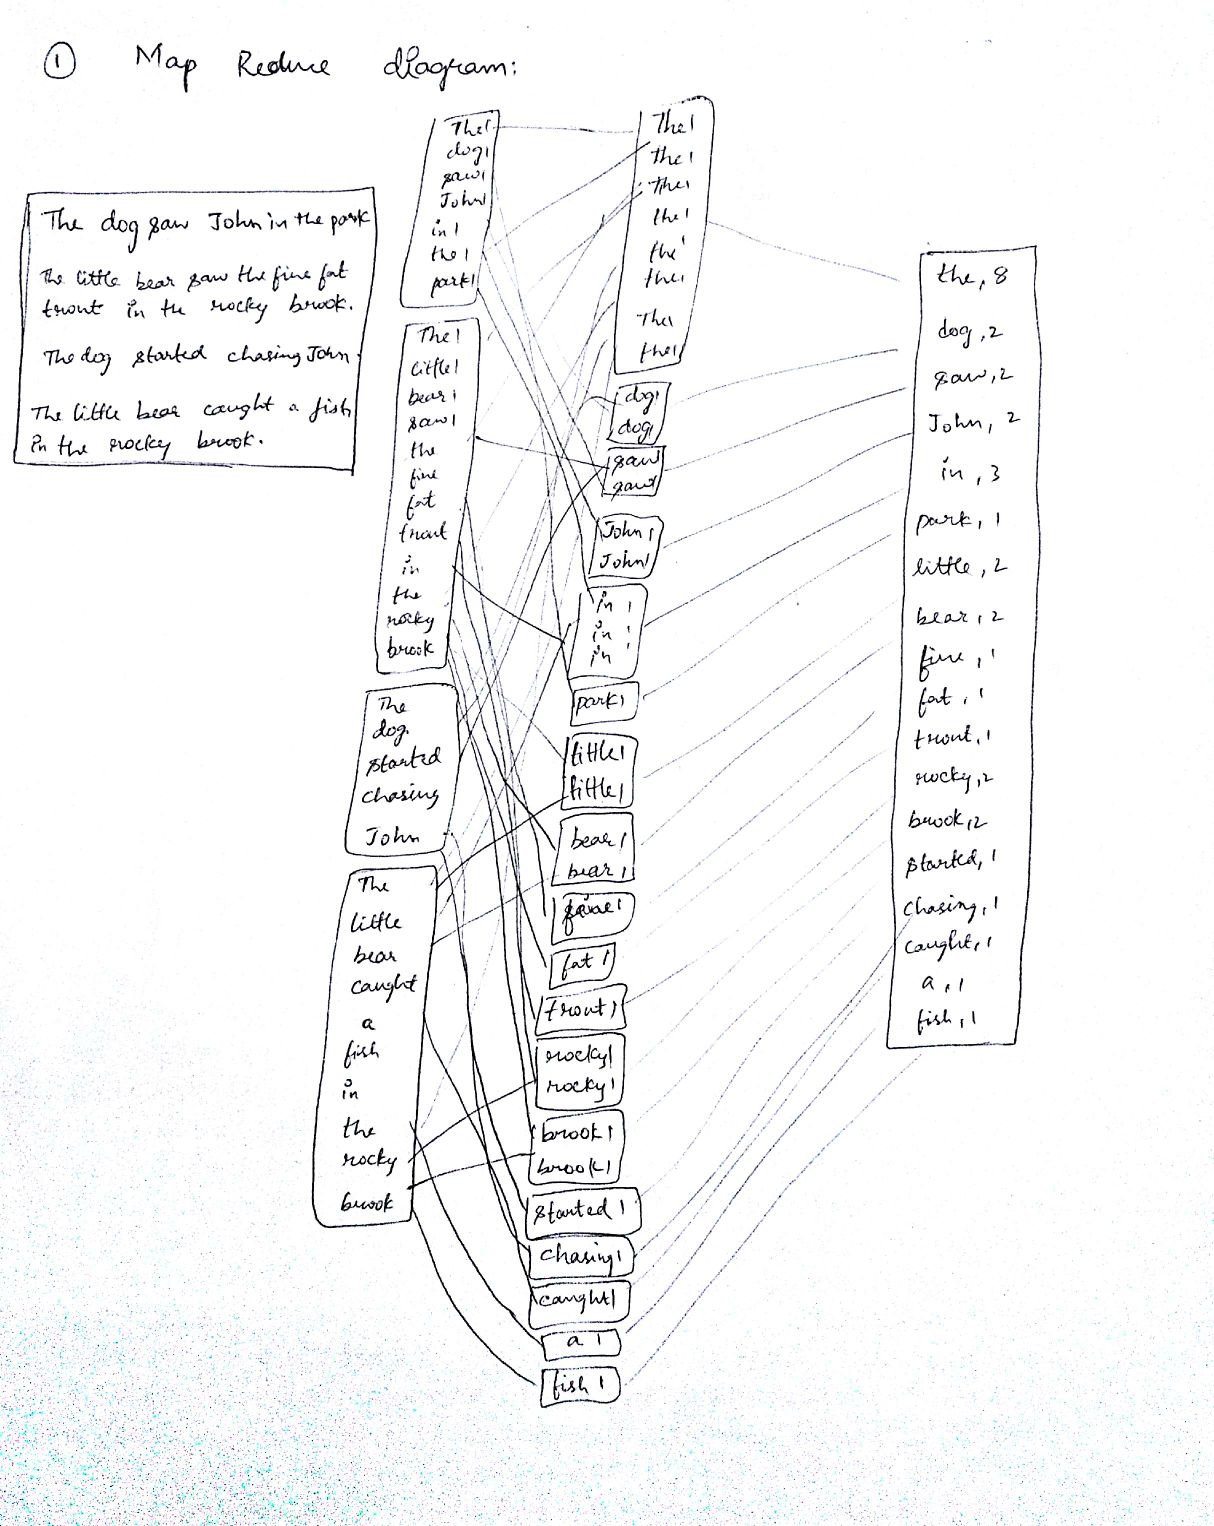 ① Map Reduce diagram:
The dog saw John in the park
The little bear saw the fine fat
trout in the rocky brook.
The dog started chasing John.
The little bear caught a fish
in the rocky brook.
The 1
dog 1
saw 1
John 1
in 1
the 1
park 1
The 1
little 1
bear 1
saw 1
the
fine
fat
trout
in
the
rocky
brook
The
dog.
started
chasing
John
The
little
bear
caught
a
fish
in
the
rocky
brook
The 1
the 1
The 1
the 1
the 1
the 1
The 1
the 1
dog 1
dog 1
saw
saw 1
John 1
John 1
in 1
in 1
in 1
park 1
little 1
little 1
bear 1
bear 1
fine 1
fat 1
trout 1
rocky 1
rocky 1
brook 1
brook 1
started 1
chasing 1
caught 1
a 1
fish 1
the, 8
dog, 2
saw, 2
John, 2
in, 3
park, 1
little, 2
bear, 2
fine, 1
fat, 1
trout, 1
rocky, 2
brook, 2
started, 1
chasing, 1
caught, 1
a, 1
fish, 1